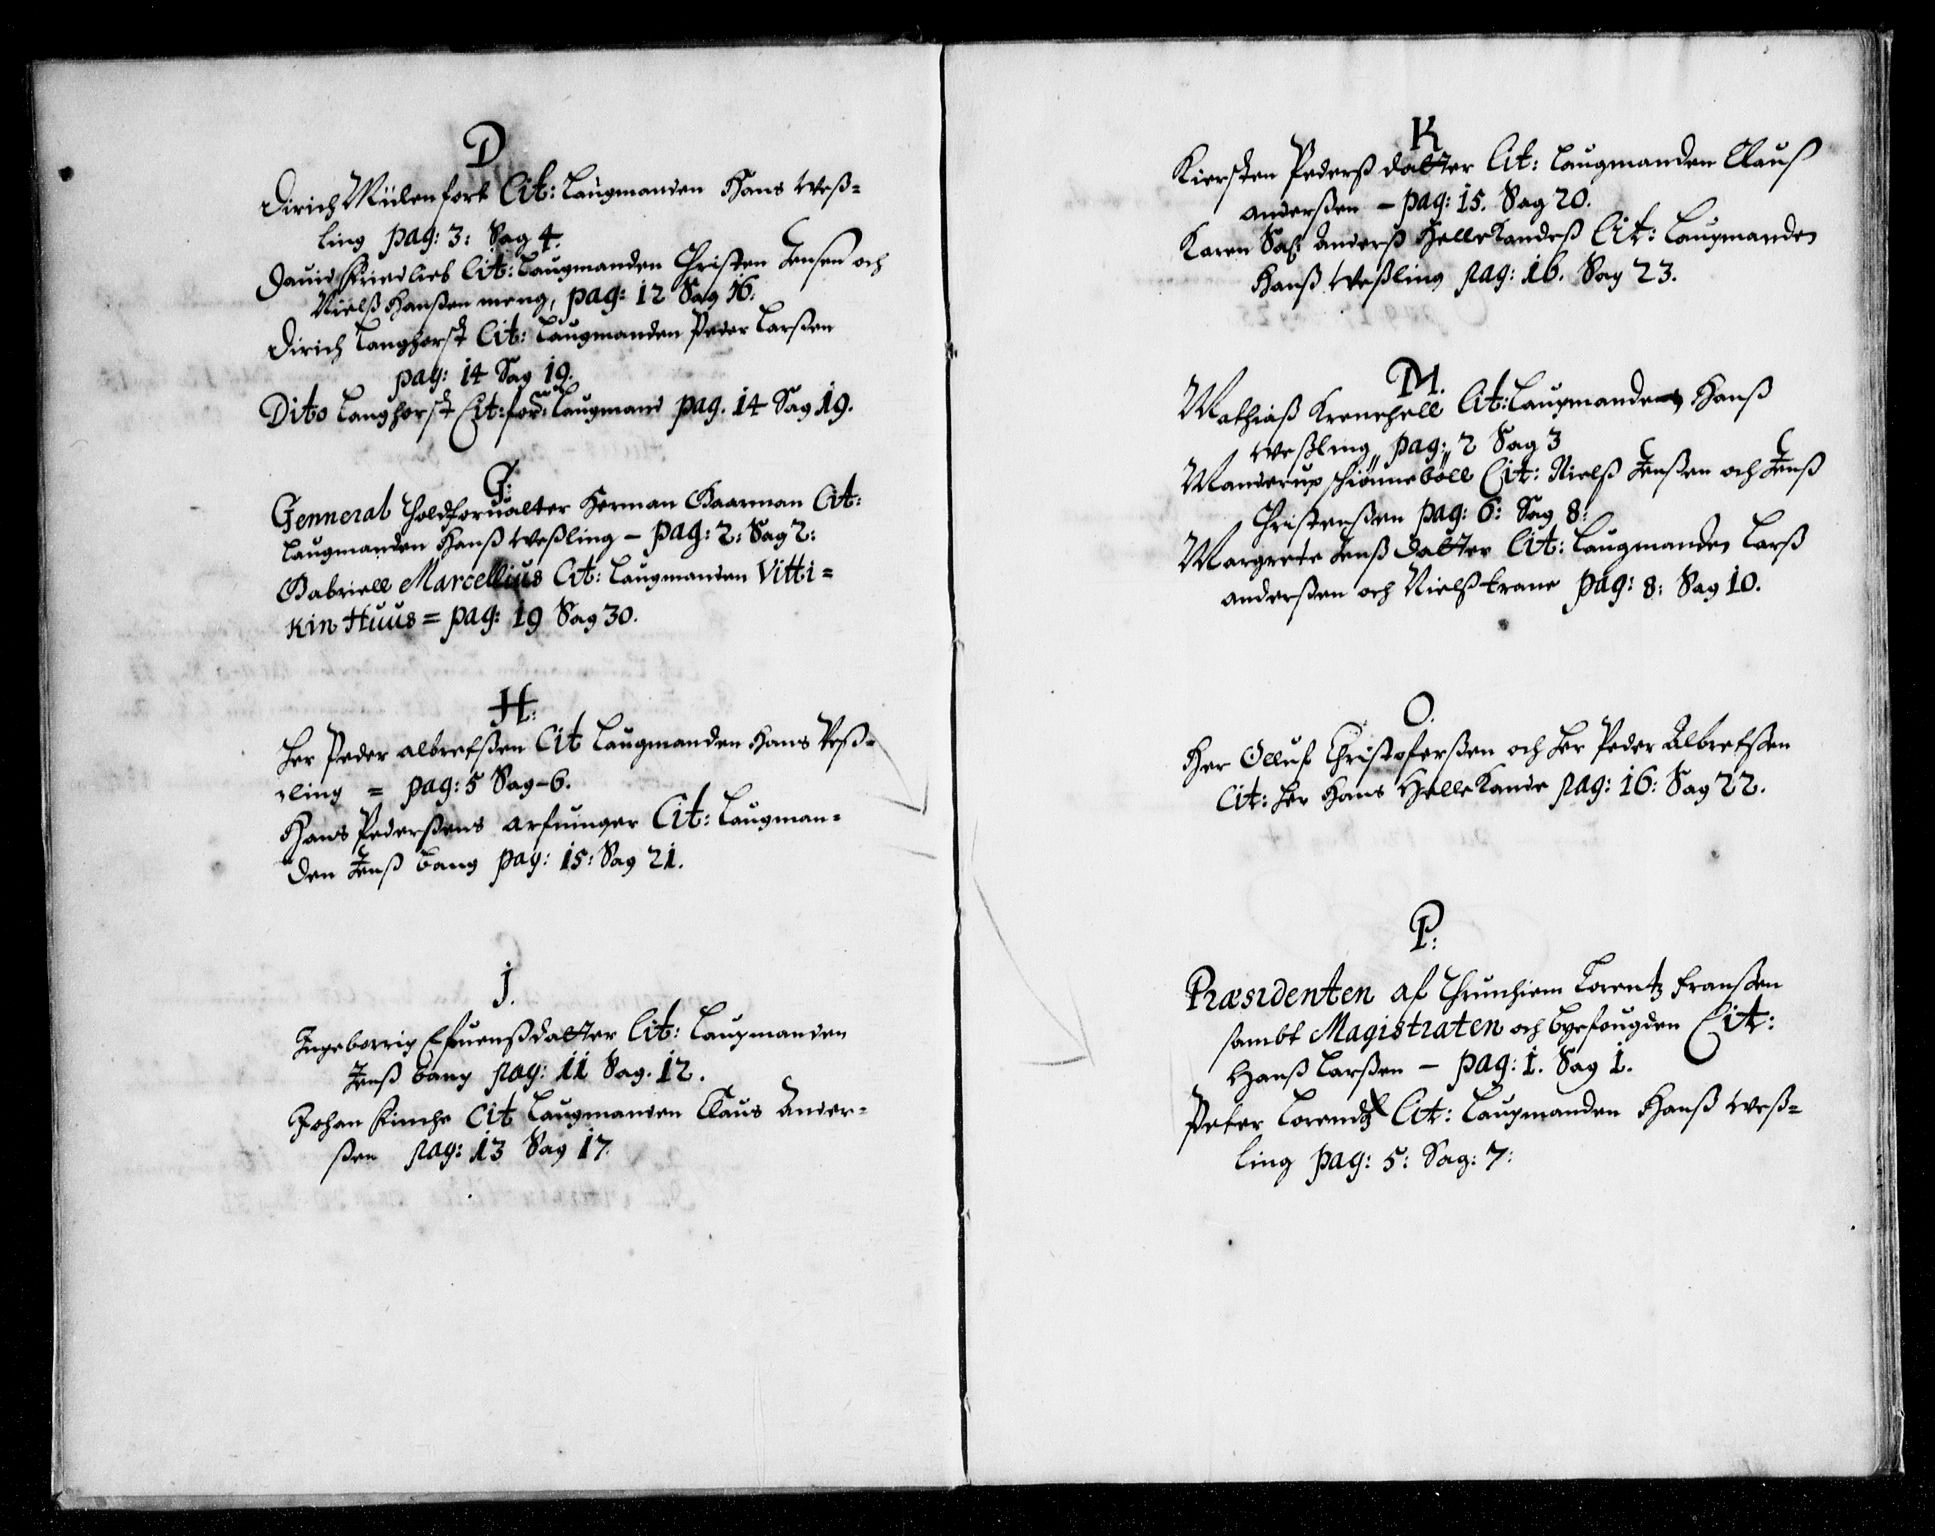 D
Dirich Mülenfort Cit: Laugmanden Hans Weß=
ling pag: 3: Sag 4.
Dauid Friedlieb Cit: Laugmanden Christen Jensen och
Nielß Hanßen meng, pag: 12 Sag 16:
Dirich Langhorst Cit: Laugmanden Peder Larßen
pag: 14 Sag 19.
Dito Langhorst Cit: for: Laugmand pag. 14 Sag 19.
G:
Genneral Toldforualter Herman Gaarman Cit:
Laugmanden Hanß Weßling – pag: 2: Sag 2:
Gabriell Marcellius Cit: Laugmanden Vitti=
kin Huus = pag: 19 Sag 30.
H:
Her Peder albretßen Cit Laugmanden Hans Veß=
ling = pag: 5 Sag – 6.
Hans Pederßens arfuinger Cit: Laugman=
den Jenß bang pag: 15: Sag 21.
J.
Ingeborrig Efuenßdatter Cit: Laugmanden
Jenß bang pag: 11 Sag. 12.
Johan Finche Cit Laugmanden Claus Ander=
ßen pag: 13 Sag 17.
K
Kiersten Pederß datter Cit: Laugmanden Clauß
anderßen – pag: 15. Sag 20.
Karen Sal: Anderß Hellekandeß Cit: Laugmanden
Hanß Weßling pag: 16. Sag 23.
M.
Mathiaß Kronepell Cit: Laugmanden Hanß
Weßling,, pag:,, 2 Sag 3
Manderup schiønnebøll Cit: Nielß Jenßen och Jenß
Christenßen pag: 6: Sag 8:
Margrete Jenß datter Cit: Laugmanden Larß
anderßen och Nielß trane pag: 8: Sag 10.
O.
Her Olluf Christoferßen och Her Peder Albretßen
Cit: Her Hans Hellekande pag: 16: Sag 22.
P:
Præsidenten af Thrunhiem Lorentz Franßen
sambt Magistraten och byefougden Cit:
Hanß Larßen – pag: 1. Sag 1.
Peter Lorendtz Cit: Laugmanden Hanß Weß=
ling pag: 5: Sag: 7: